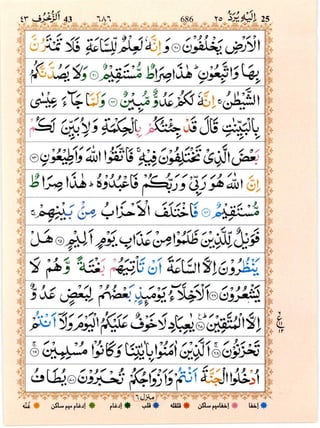 الزخرف 43 686 اليه يرد 25
الْاَرْضِ يَخْلُفُوْنَ ۞ وَاِنَّهٗ لَعِلْمٌ لِّلسَّاعَةِ فَلَا تَمْتَرُنَّ
بِهَا وَاتَّبِعُوْنِ ؕ هٰذَا صِرَاطٌ مُّسْتَقِيْمٌ ۞ وَلَا يَصُدَّنَّكُمُ
الشَّيْطٰنُ ۚ اِنَّهٗ لَكُمْ عَدُوٌّ مُّبِيْنٌ ۞ وَلَمَّا جَآءَ عِيْسٰى
بِالْبَيِّنٰتِ قَالَ قَدْ جِئْتُكُمْ بِالْحِكْمَةِ وَلِاُبَيِّنَ لَكُمْ
بَعْضَ الَّذِيْ تَخْتَلِفُوْنَ فِيْهِ ۚ فَاتَّقُوا اللّٰهَ وَاَطِيْعُوْنِ ۞
اِنَّ اللّٰهَ هُوَ رَبِّيْ وَرَبُّكُمْ فَاعْبُدُوْهُ ؕ هٰذَا صِرَاطٌ
مُّسْتَقِيْمٌ ۞ فَاخْتَلَفَ الْاَحْزَابُ مِنْۢ بَيْنِهِمْ ۚ
فَوَيْلٌ لِّلَّذِيْنَ ظَلَمُوْا مِنْ عَذَابِ يَوْمٍ اَلِيْمٍ ۞ هَلْ
يَنْظُرُوْنَ اِلَّا السَّاعَةَ اَنْ تَاْتِيَهُمْ بَغْتَةً وَّهُمْ لَا
يَشْعُرُوْنَ ۞ اَلْاَخِلَّآءُ يَوْمَئِذٍۢ بَعْضُهُمْ لِبَعْضٍ عَدُوٌّ
اِلَّا الْمُتَّقِيْنَ ۞ يٰعِبَادِ لَا خَوْفٌ عَلَيْكُمُ الْيَوْمَ وَلَاۤ اَنْتُمْ
تَحْزَنُوْنَ ۞ اَلَّذِيْنَ اٰمَنُوْا بِاٰيٰتِنَا وَكَانُوْا مُسْلِمِيْنَ ۞
اُدْخُلُوا الْجَنَّةَ اَنْتُمْ وَاَزْوَاجُكُمْ تُحْبَرُوْنَ ۞ يُطَافُ
منزل ٦
اخفا اخفامیم ساکن قلقلہ قلب ادغام ادغام میم ساکن غنہ